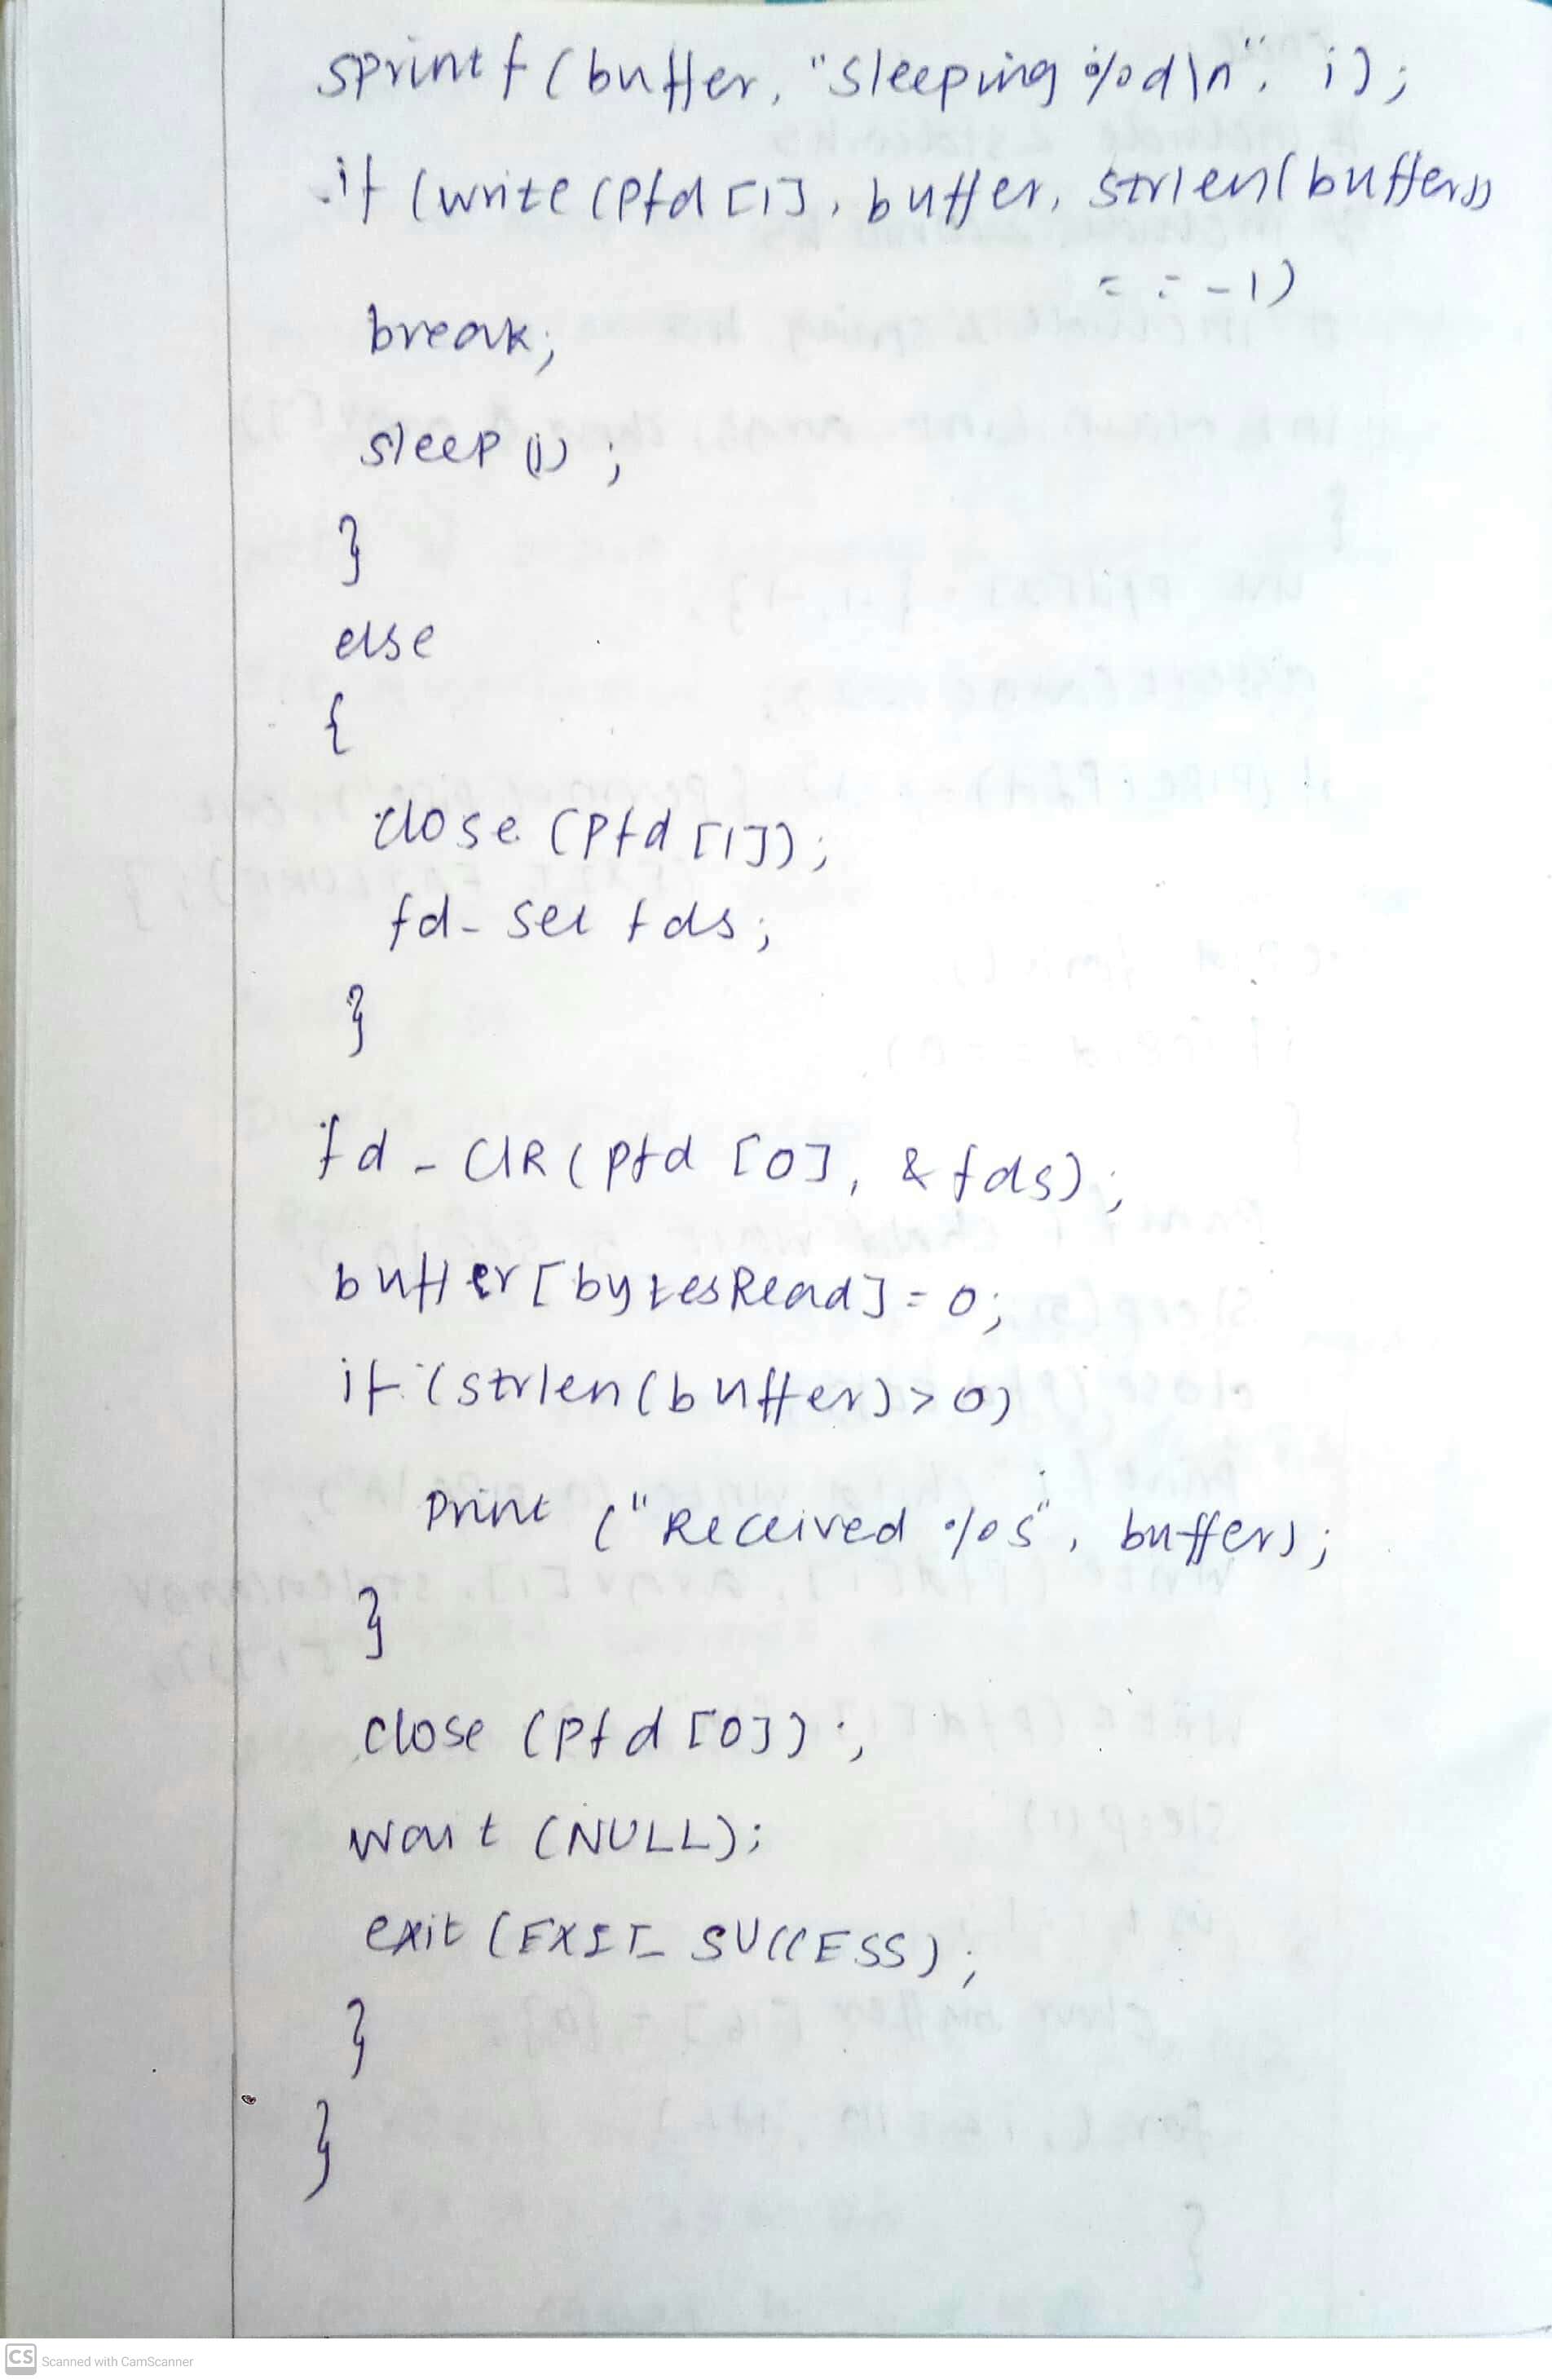 sprintf (buffer, "sleeping %d\n", i);
if (write (pfd [1], buffer, strlen(buffer))
== -1)
break;
sleep (1);
}
else
{
close (pfd [1]);
fd_set fds;
}
fd_CLR (pfd [0], & fds);
buffer [bytesRead] = 0;
if (strlen (buffer) > 0)
Print ("Received %s", buffer);
}
close (pfd [0]);
wait (NULL);
exit (EXIT_SUCCESS);
}
}
CS Scanned with CamScanner